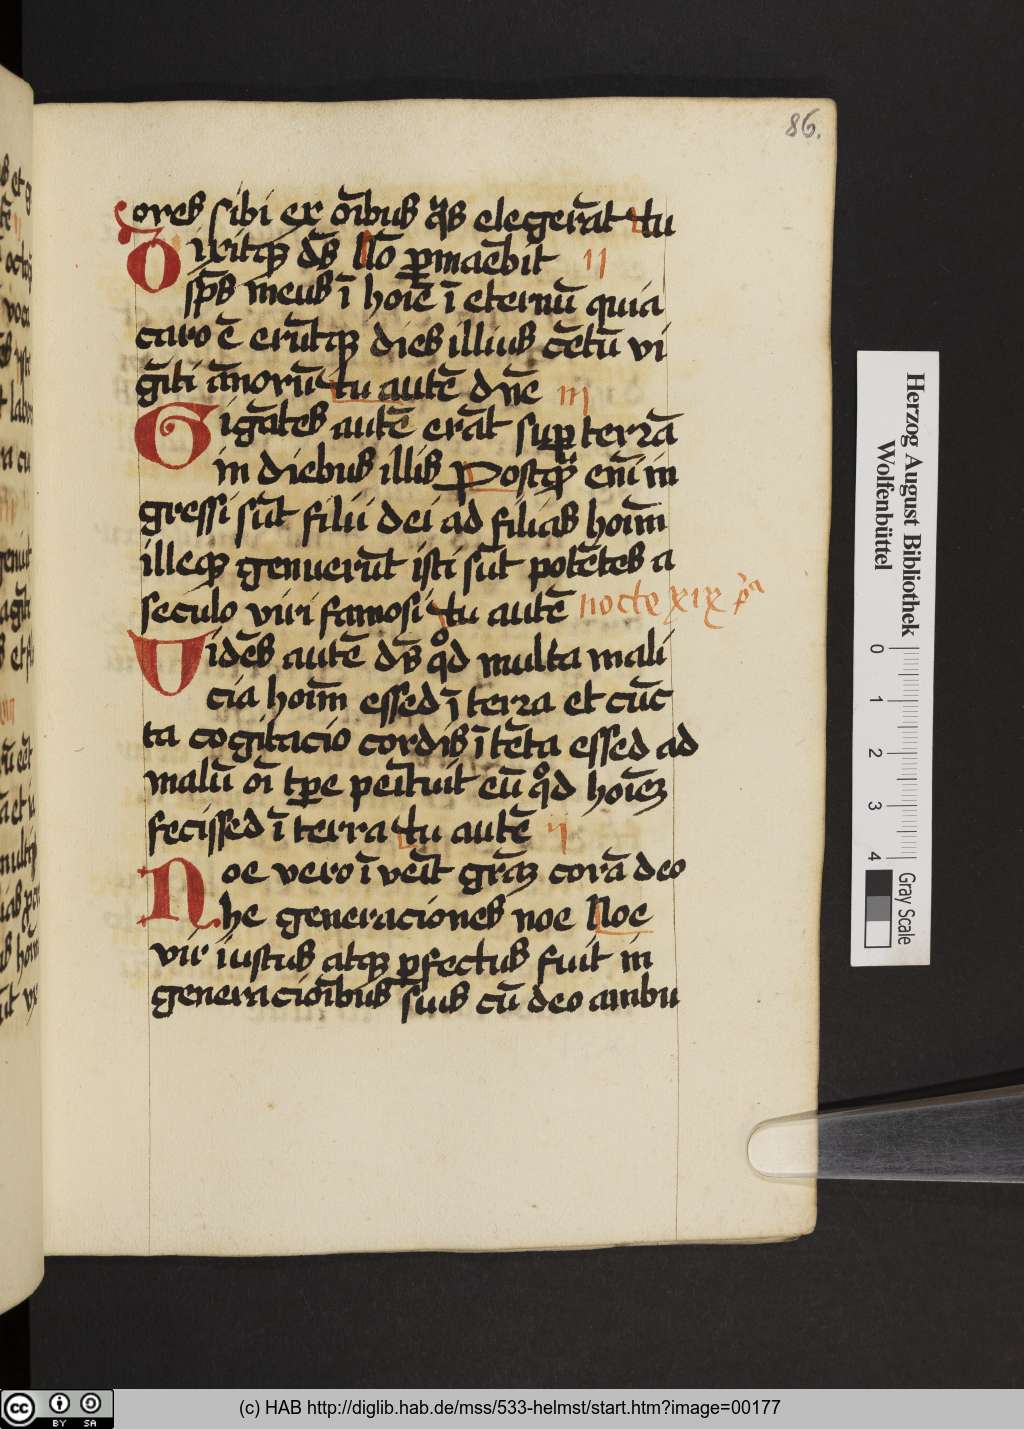 86.
ores sibi ex o̅ibus q̅s elegera̅t tu
Dixitqꝫ d̅s No̅ ꝑmane̅bit ii
sp̅s meus i̅ hoi̅e i̅ eternu̅ quia
caro e̅ eru̅tqꝫ dies illius ce̅tu̅ vi
gi̅ti a̅noru̅ tu aute̅ dn̅e iii
Giga̅tes aute̅ era̅t suꝑ terra̅
in diebus illis Postqꝫ̅ eni̅ in
gressi su̅t filii dei ad filias hoim̅
illeqꝫ genueru̅t isti su̅t pote̅tes a
seculo viri famosi tu aute̅ nocte xix pͣ
Vide̅s aute̅ d̅s qͦd multa mali
cia hoim̅ essed i̅ terra et cu̅c
ta cogitacio cordis i̅te̅ta essed ad
malu̅ oi̅ tꝑe pei̅tuit eu̅ qͦd hoi̅eꝫ
fecissed i̅ terra tu aute̅ ii
Noe vero i̅ve̅it gra̅ꝫ cora̅ deo
he generaciones noe Noe
vir iustus atqꝫ ꝑfectus fuit in
generacio̅ibus suis cu̅ deo ambu
Herzog August Bibliothek
Wolfenbüttel
0 1 2 3 4
Gray Scale
cc BY SA
(c) HAB http://diglib.hab.de/mss/533-helmst/start.htm?image=00177